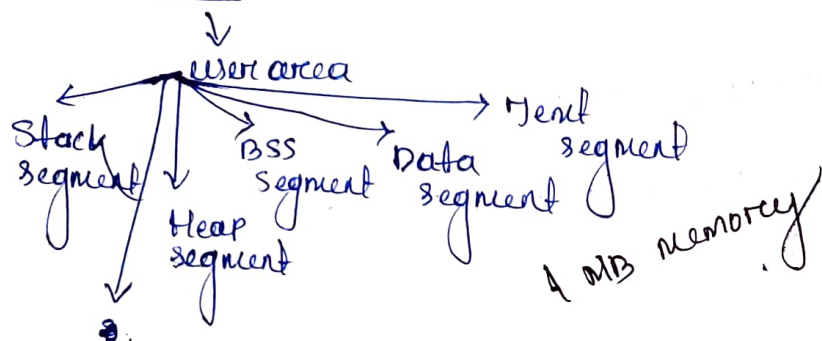 user area
Stack
segment
Heap
segment
BSS
segment
Data
segment
Text
segment
1 MB memory